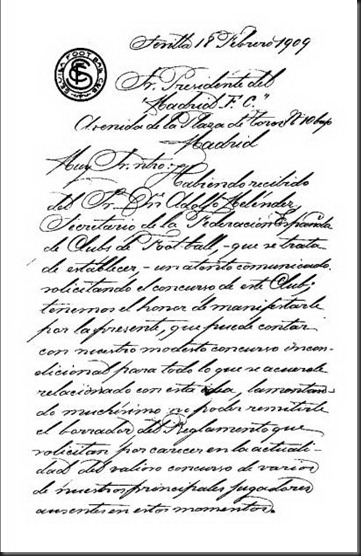 SEVILLA FOOTBALL CLUB
Sevilla 18 Febrero 1909
Sr. Presidente del
"Madrid F.C."
Avenida de la Plaza de Toros Nº 10 bajo
Madrid
Muy Sr. ntro:
Habiendo recibido
del Sr. Dn. Adolfo Meléndez
Secretario de la Federación Española
de Clubs de Football, - que se trata
de establecer, - un atento comunicado,
solicitando el concurso de este Club;
tenemos el honor de manifestarle
por la presente, que puede contar
con nuestro modesto concurso incon-
dicional para todo lo que se acuerde
relacionado con esta idea, lamentan-
do muchísimo no poder remitirle
el borrador del Reglamento que
solicitan por carecer en la actuali-
dad del valioso concurso de varios
de nuestros principales jugadores
ausentes en estos momentos.